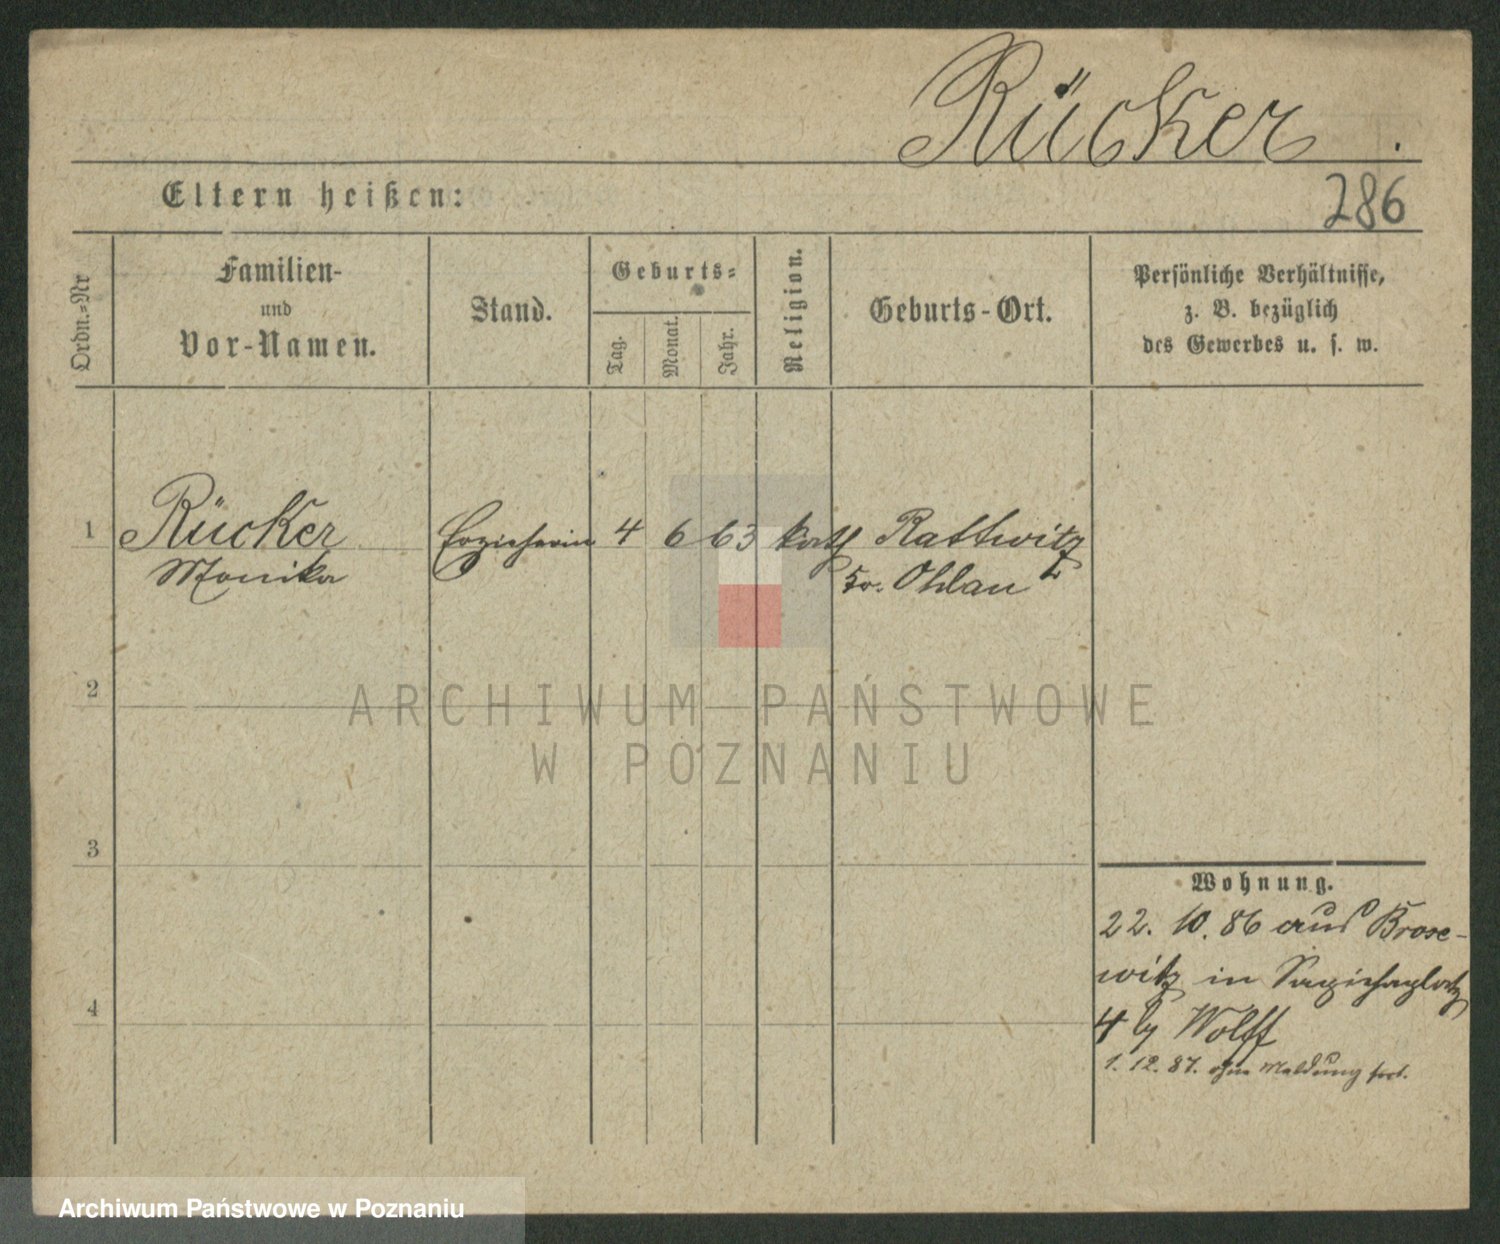 Rücker.
Eltern heißen:
286
Ordn.=Nr
Familien-
und
Vor-Namen.
Stand.
Geburts=
Tag.
Monat.
Jahr.
Religion.
Geburts-Ort.
Persönliche Verhältnisse,
z. B. bezüglich
des Gewerbes u. s. w.
1 Rücker Erzieherin 4 6 63 kath Rattwitz
Monika Kr. Ohlau
2
ARCHIWUM PAŃSTWOWE
W POZNANIU
3
Wohnung.
22. 10. 86 aus Brose-
witz in Sapiehaplatz
4
4 by Wolff
1. 12. 87. ohne Meldung fort.
Archiwum Państwowe w Poznaniu